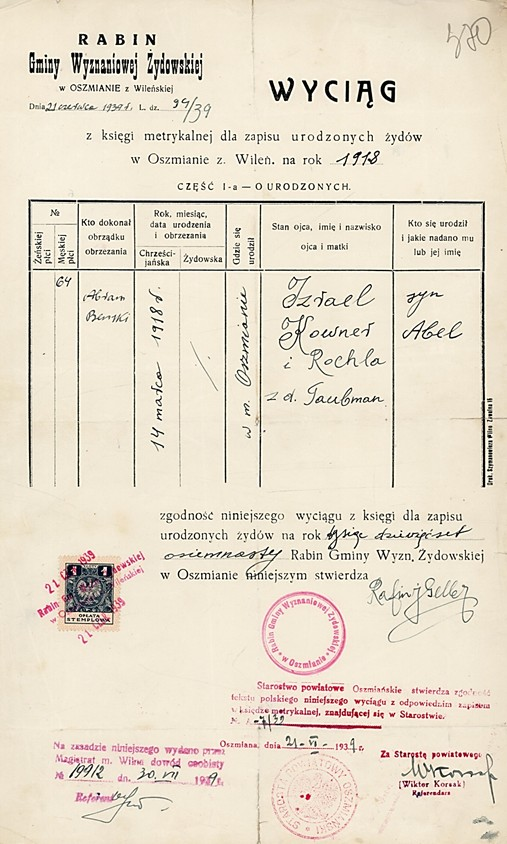 580
RABIN
Gminy Wyznaniowej Żydowskiej
w OSZMIANIE z Wileńskiej
Dnia 21 czerwca 1939 r. L. dz. 94/39
WYCIĄG
z księgi metrykalnej dla zapisu urodzonych żydów
w Oszmianie z. Wileń. na rok 1918
CZĘŚĆ I-a — O URODZONYCH.
№
Żeńskiej płci
Męskiej płci
Kto dokonał obrządku obrzezania
Rok, miesiąc, data urodzenia i obrzezania
Chrześcijańska
Żydowska
Gdzie się urodził
Stan ojca, imię i nazwisko ojca i matki
Kto się urodził i jakie nadano mu lub jej imię
64
Abram
Berski
14 marca 1918 r.
w m. Oszmianie
Izrael
Kowner
i Rochla
z d. Taubman
syn
Abel
Druk. Szymanowicza Wilno Zawalna 11
zgodność niniejszego wyciągu z księgi dla zapisu
urodzonych żydów na rok tysiąc dziewięćset
osiemnasty Rabin Gminy Wyzn. Żydowskiej
w Oszmianie niniejszym stwierdza
Rabin J Geller
21 1939
1 1
OPŁATA
STEMPLOWA
21 1939
Rabin Gminy Wyznaniowej Żydowskiej
w Oszmianie
Starostwo powiatowe Oszmiańskie stwierdza zgodność
tekstu polskiego niniejszego wyciągu z odpowiednim zapisem
w księdze metrykalnej, znajdującej się w Starostwie.
-7/39
Oszmiana, dnia 21-VI-1939 r.
Za Starostę powiatowego
(Wiktor Korsak)
Referendarz
STAROSTA POWIATOWY OSZMIAŃSKI
Na zasadzie niniejszego wydano przez
Magistrat m. Wilna dowód osobisty
№ 19912 dn. 30.VII 1939 r.
Referent